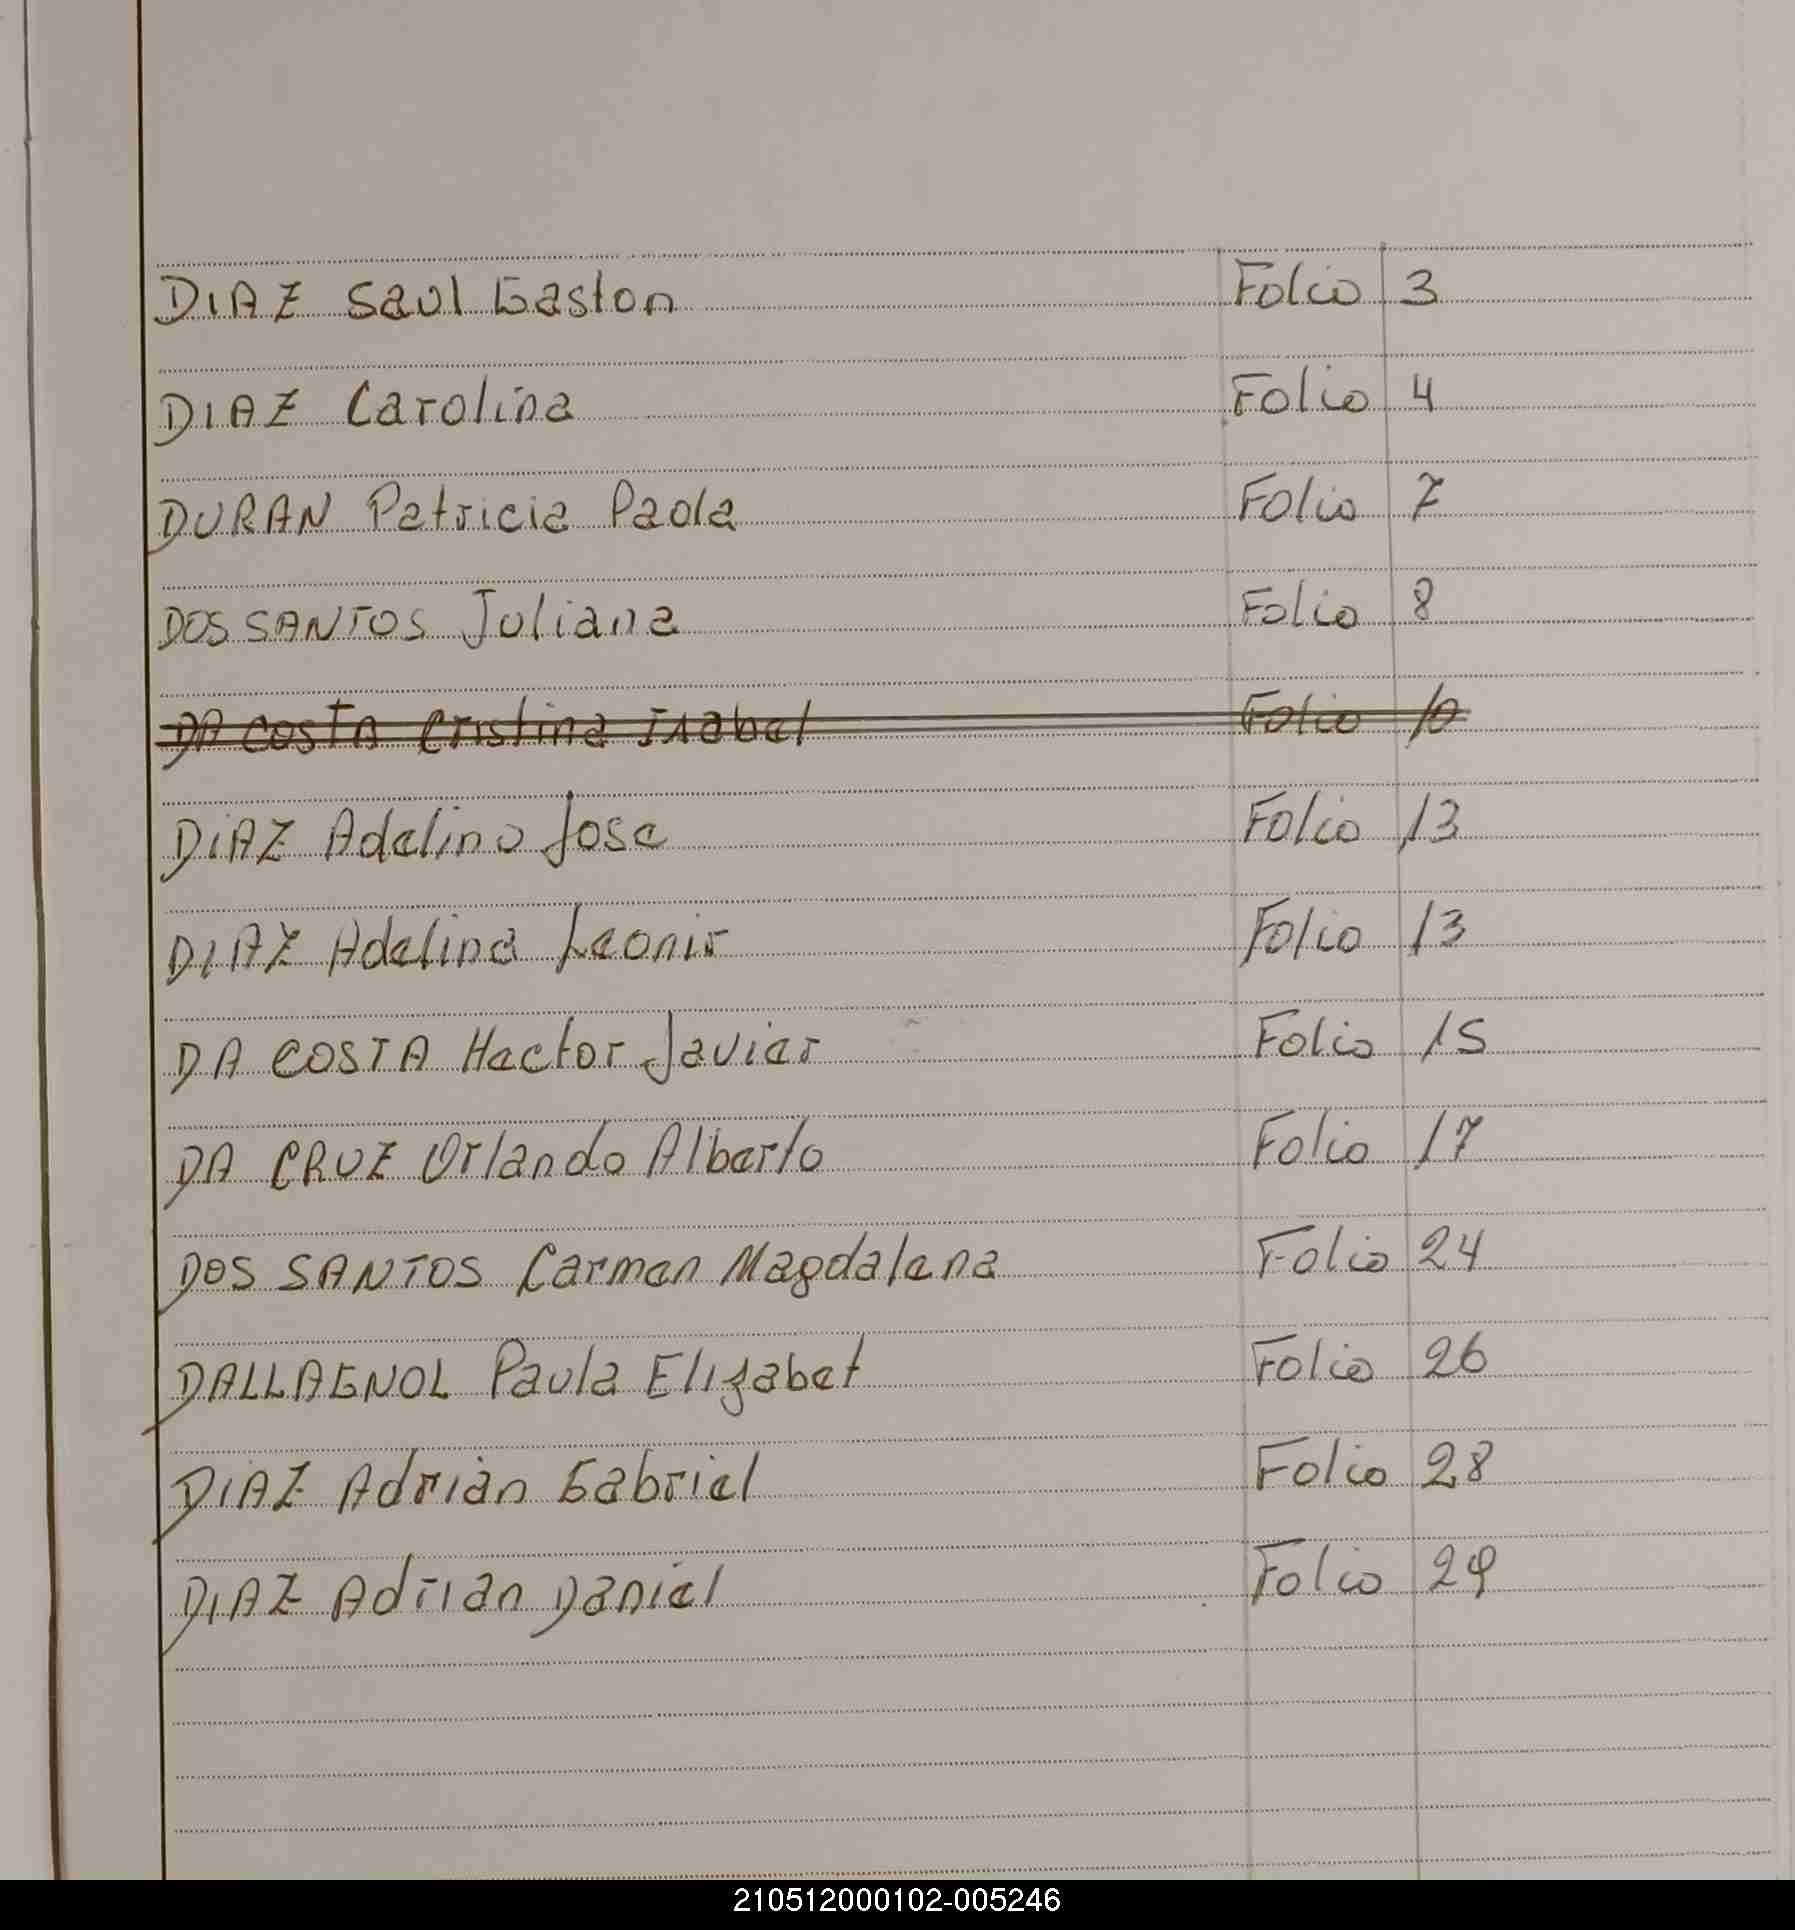 DIAZ Saul Gaston Folio 3
DIAZ Carolina Folio 4
DURAN Patricia Paola Folio 7
DOS SANTOS Juliana Folio 8
DA COSTA Cristina Isabel Folio 10
DIAZ Adelino Jose Folio 13
DIAZ Adelina Leonir Folio 13
DA COSTA Hector Javier Folio 15
DA CRUZ Orlando Alberto Folio 17
DOS SANTOS Carmen Magdalena Folio 24
DALLAGNOL Paula Elizabet Folio 26
DIAZ Adrián Gabriel Folio 28
DIAZ Adrian Daniel Folio 29
210512000102-005246